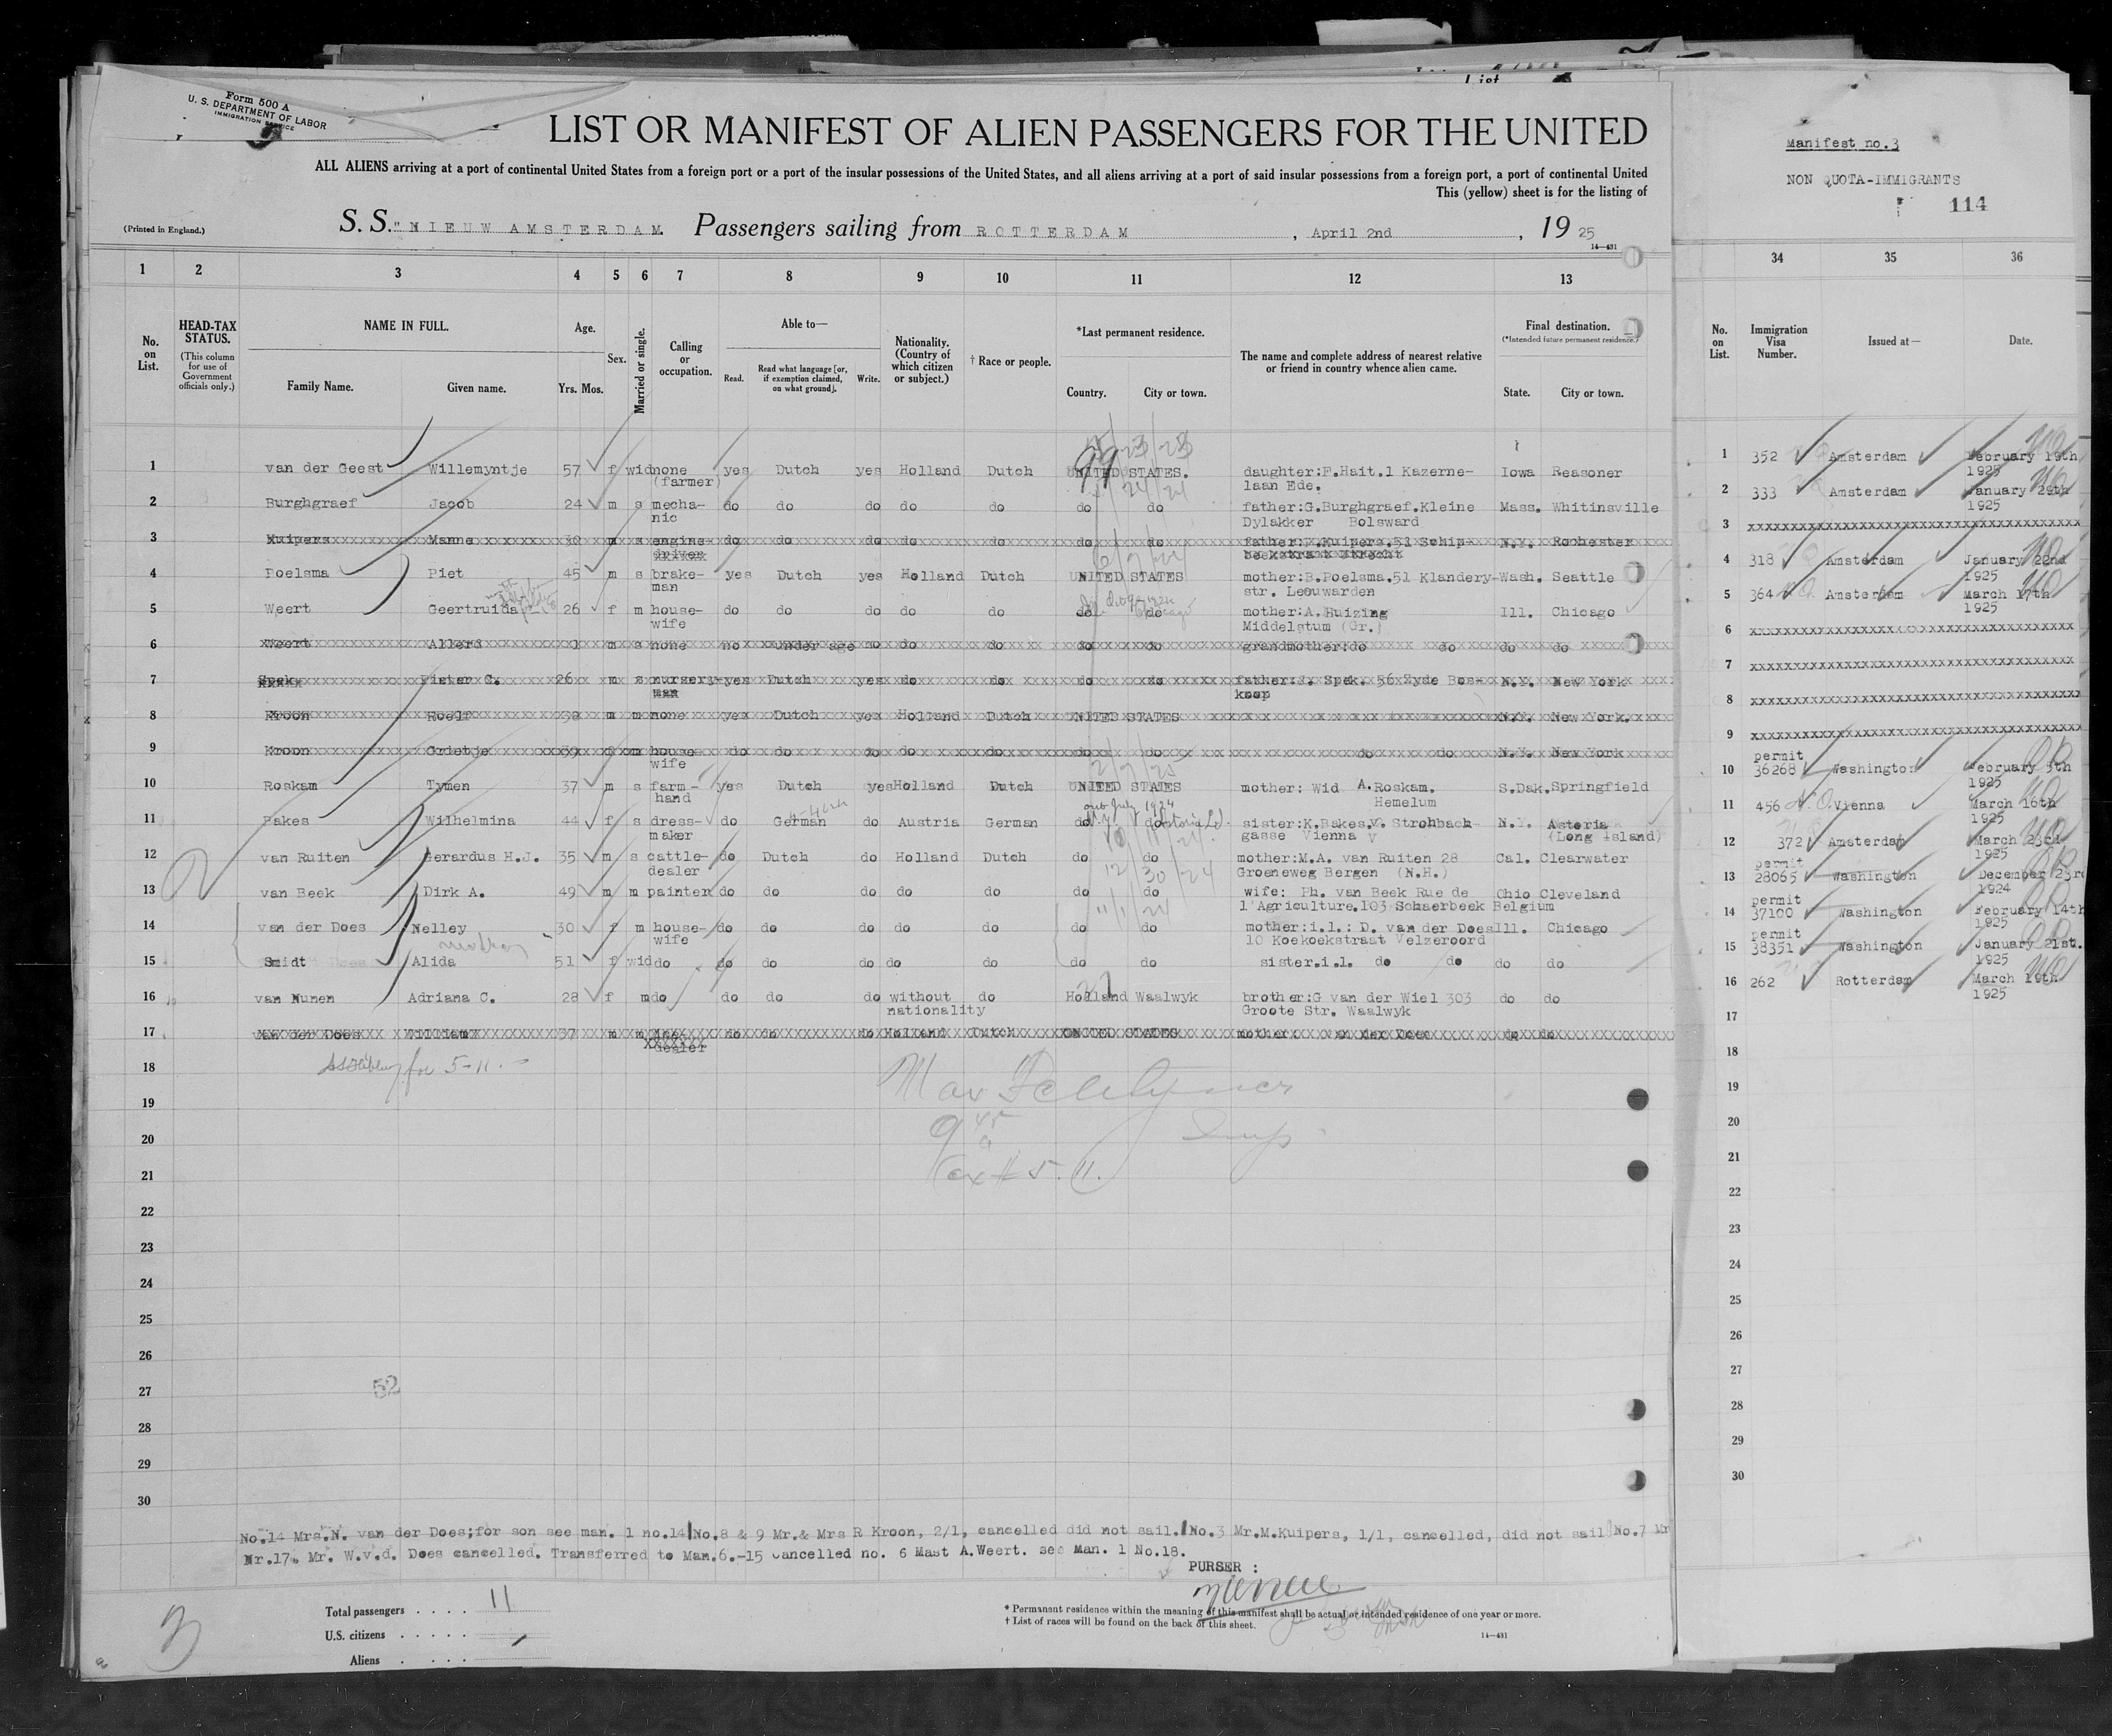 List
Form 500 A
U. S. DEPARTMENT OF LABOR
IMMIGRATION SERVICE
LIST OR MANIFEST OF ALIEN PASSENGERS FOR THE UNITED
ALL ALIENS arriving at a port of continental United States from a foreign port or a port of the insular possessions of the United States, and all aliens arriving at a port of said insular possessions from a foreign port, a port of continental United
This (yellow) sheet is for the listing of
(Printed in England.)
S. S. "NIEUW AMSTERDAM. Passengers sailing from ROTTERDAM, April 2nd, 19 25
14—431
Manifest no.3
NON QUOTA-IMMIGRANTS
114
1 2 3 4 5 6 7 8 9 10 11 12 13
34 35 36
No. on List.
HEAD-TAX STATUS.
(This column for use of Government officials only.)
NAME IN FULL.
Family Name. Given name.
Age.
Yrs. Mos.
Sex.
Married or single.
Calling or occupation.
Able to—
Read. Read what language [or, if exemption claimed, on what ground]. Write.
Nationality. (Country of which citizen or subject.)
† Race or people.
*Last permanent residence.
Country. City or town.
The name and complete address of nearest relative or friend in country whence alien came.
Final destination.
(*Intended future permanent residence.)
State. City or town.
No. on List.
Immigration Visa Number.
Issued at—
Date.
1 van der Geest Willemyntje 57 f wid none yes Dutch yes Holland Dutch UNITED STATES. daughter:F.Hait.1 Kazerne- Iowa Reasoner
(farmer) laan Ede.
2 Burghgraef Jacob 24 m s mecha- do do do do do do do father:G.Burghgraef.Kleine Mass. Whitinsville
nic Dylakker Bolsward
3 Kuipers Manne 30 m s engine- do do do do do do do father: Kuipers.51 Schip- N.Y. Rochester
driver beekstraat Utrecht
4 Poelsma Piet 45 m s brake- yes Dutch yes Holland Dutch UNITED STATES mother:B.Poelsma.51 Klandery- Wash. Seattle
man str. Leeuwarden
5 Weert Geertruida 26 f m house- do do do do do do do mother:A.Huizing Ill. Chicago
wife Middelstum (Gr.)
6 Weert Allerd 1 m s none no under age no do do do do grandmother:do do do do
7 Spek Pieter C. 26 m s nursery- yes Dutch yes do do do do father: Spek. 56 Zyde Bos- N.Y. New York
man koop
8 Kroon Roelf m m none yes Dutch yes Holland Dutch UNITED STATES N.Y. New York.
9 Kroon Grietje 39 f m house- do do do do do do do do do N.Y. New York
wife
10 Roskam Tymen 37 m s farm- yes Dutch yes Holland Dutch UNITED STATES mother: Wid A.Roskam. S.Dak. Springfield
hand Hemelum
11 Bakes Wilhelmina 44 f s dress- do German do Austria German do do sister:K.Bakes.V. Strohback- N.Y. Astoria
maker gasse Vienna V (Long Island)
12 van Ruiten Gerardus H.J. 35 m s cattle- do Dutch do Holland Dutch do do mother:M.A. van Ruiten 28 Cal. Clearwater
dealer Groeneweg Bergen (N.H.)
13 van Beek Dirk A. 49 m m painter do do do do do do do wife: Ph. van Beek Rue de Ohio Cleveland
l'Agriculture.103 Schaerbeek Belgium
14 van der Does Nelley 30 f m house- do do do do do do do mother:i.l.: D. van der Does Ill. Chicago
wife 10 Koekoekstraat Velzeroord
15 Smidt Alida 51 f wid do do do do do do do do sister.i.l. do do do do
16 van Nunen Adriana C. 28 f m do do do do without do Holland Waalwyk brother:G van der Wiel 303 do do
nationality Groote Str. Waalwyk
17 van der Does William 37 m m do do do Holland Dutch UNITED STATES mother. van der Does do do
dealer
18
19
20
21
22
23
24
25
26
27
28
29
30
for 5-11.
9 45 a
Insp.
ex # 5. 11.
52
1 352 Amsterdam February 19th
1925
2 333 Amsterdam January 29th
1925
3
4 318 Amsterdam January 22nd
1925
5 364 Amsterdam March 17th
1925
6
7
8
9
permit
10 36268 Washington February 5th
1925
11 456 Vienna March 16th
1925
12 372 Amsterdam March 23rd
1925
permit
13 28065 Washington December 23rd
1924
permit
14 37100 Washington February 14th
1925
permit
15 38351 Washington January 21st.
1925
16 262 Rotterdam March 19th
1925
17
18
19
20
21
22
23
24
25
26
27
28
29
30
No.14 Mrs.N. van der Does;for son see man. 1 no.14 No.8 & 9 Mr.& Mrs R Kroon, 2/1, cancelled did not sail. No.3 Mr.M.Kuipers, 1/1, cancelled, did not sail No.7 Mr
Nr.17. Mr. W.v.d. Does cancelled. Transferred to Man.6.-15 Cancelled no. 6 Mast A.Weert. see Man. 1 No.18.
PURSER :
Total passengers . . . . 11
U.S. citizens . . . . .
Aliens . . . .
3
* Permanent residence within the meaning of this manifest shall be actual or intended residence of one year or more.
† List of races will be found on the back of this sheet.
14—431